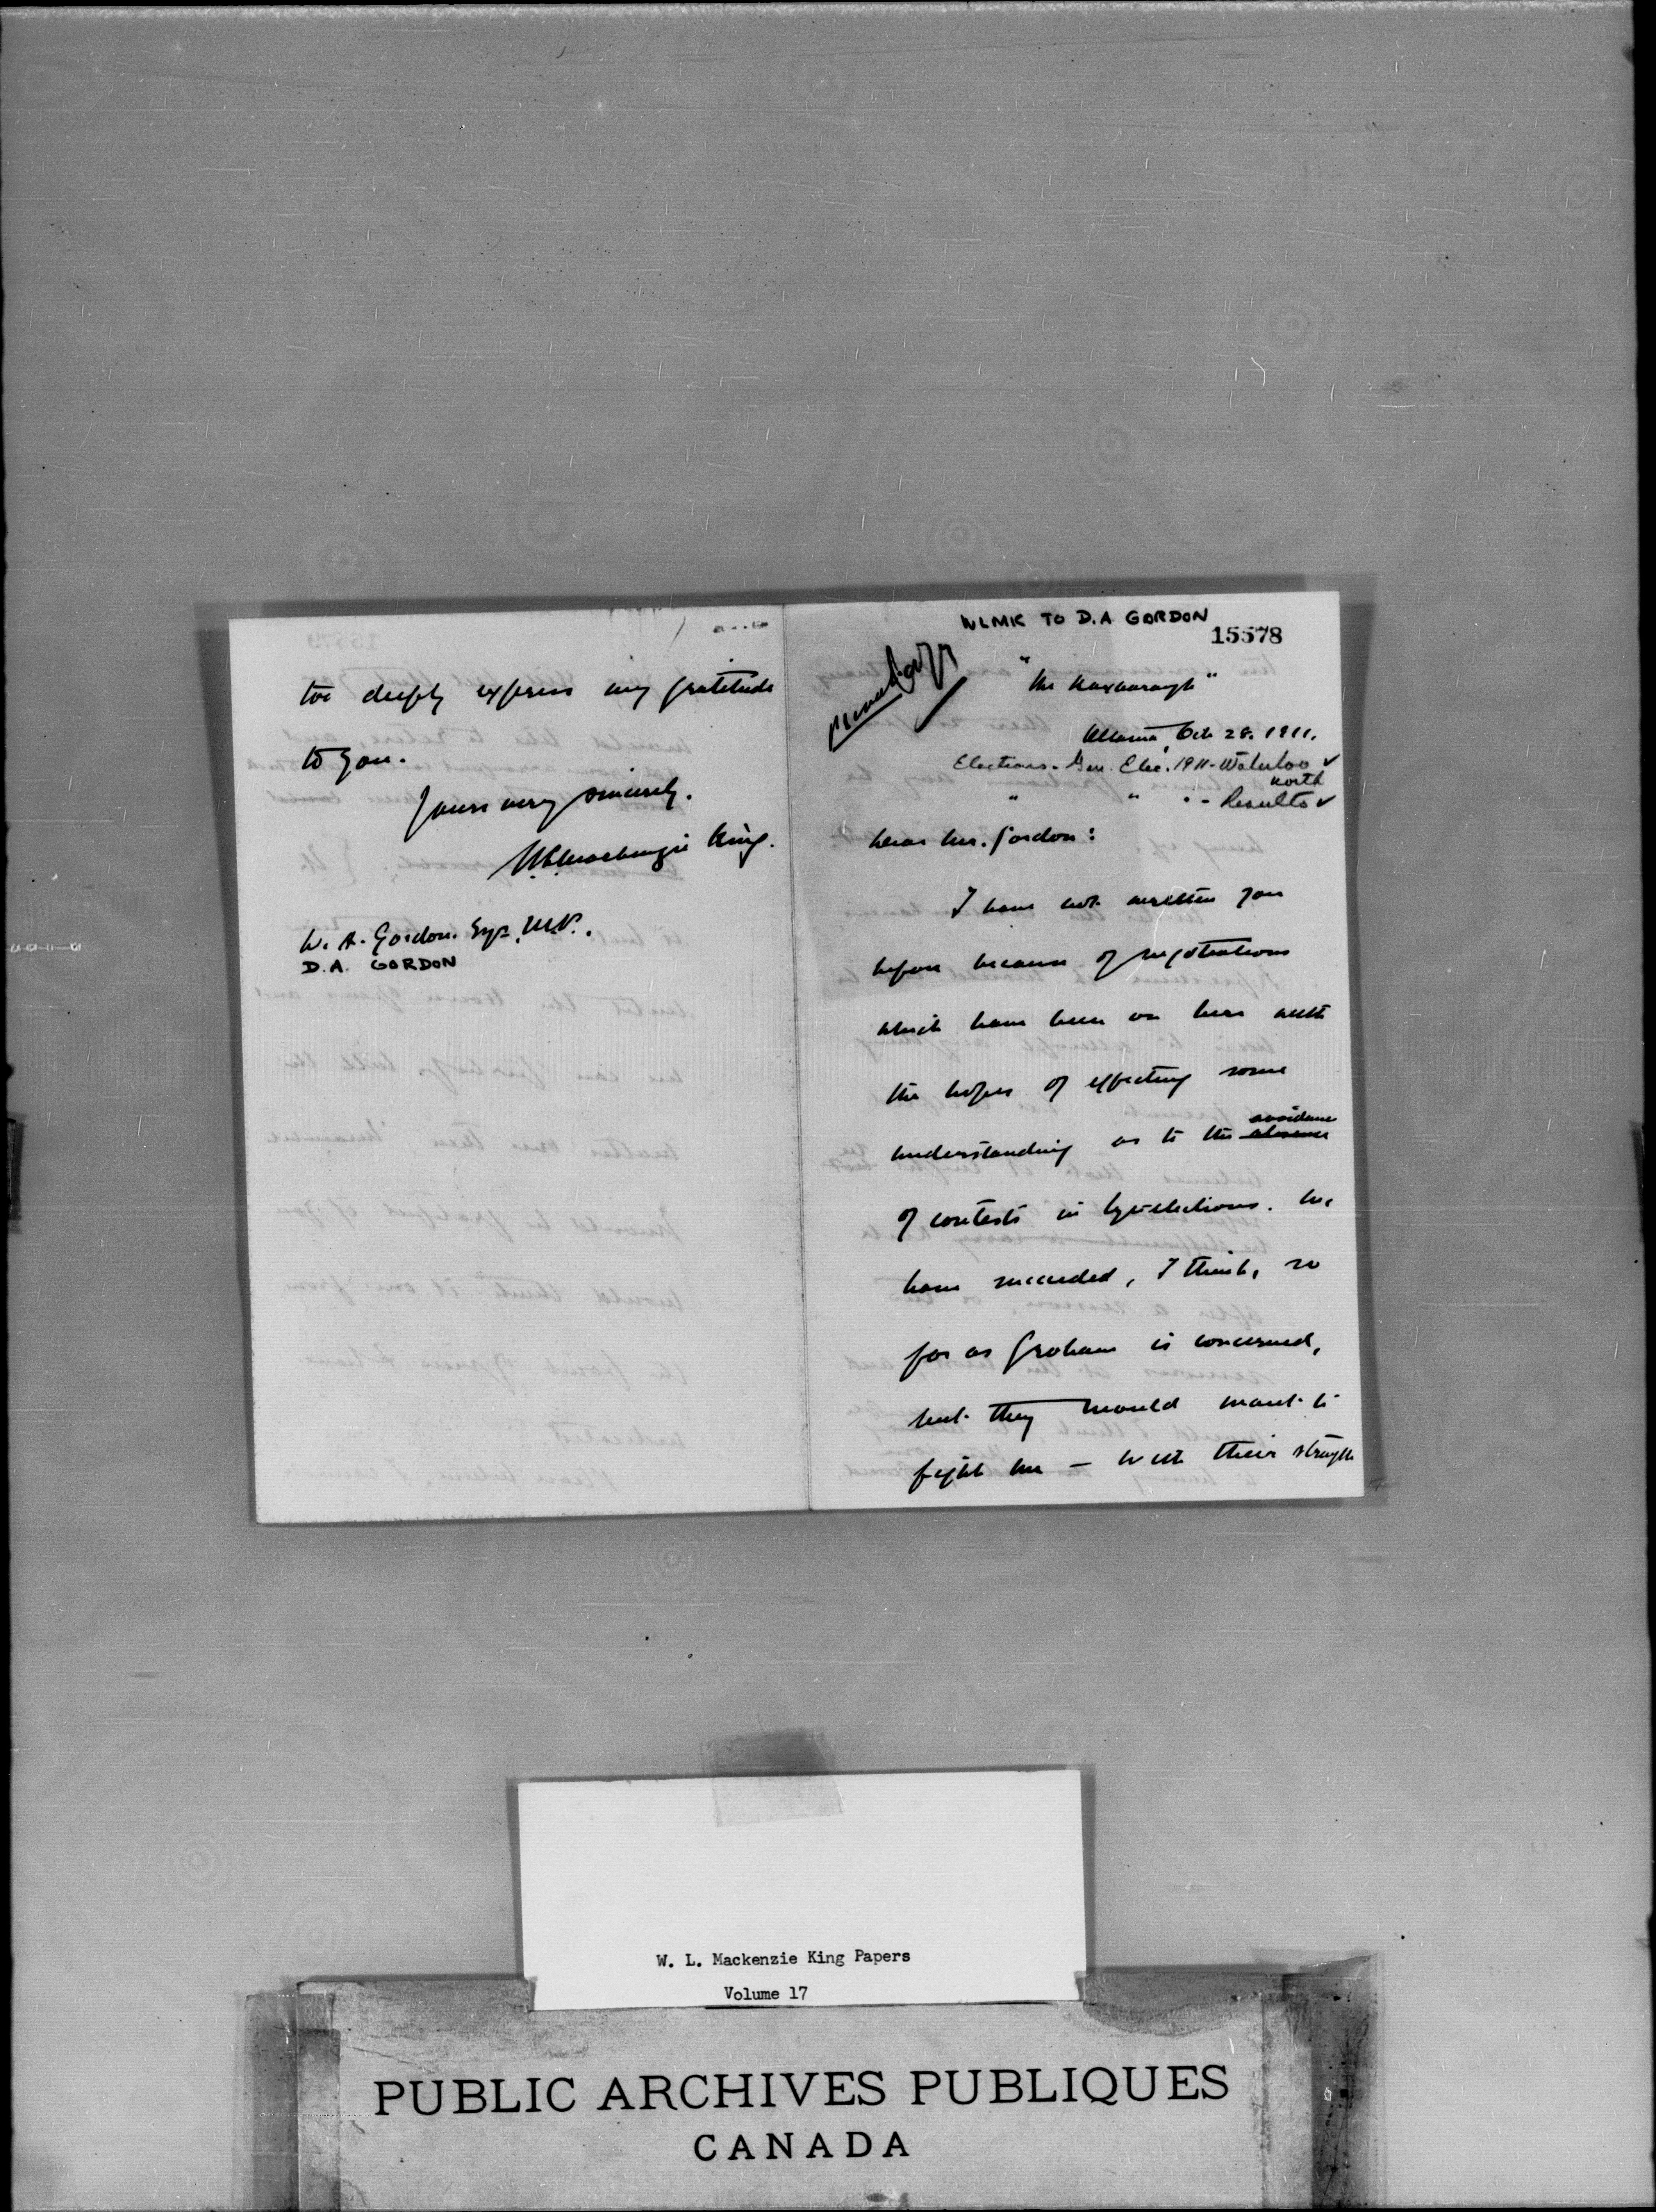 too deeply express my gratitude
to you.
Yours very sincerely.
W.L. Mackenzie King.
W. A. Gordon. Esq. M.P..
D.A. GORDON
WLMK TO D.A GORDON
15578
copy
"The Roxborough"
Ottawa, Oct. 28. 1911.
Elections - Gen. Elec. 1911 - Waterloo ✓
North
" " " - Results ✓
Dear Mr. Gordon:
I have not written you
before because of negotiations
which have been on here with
the hopes of effecting some
avoidance
understanding as to the absence
of contests in bye-elections. We
have succeeded, I think, so
far as Graham is concerned,
but they would want to
fight me - with their strength
W. L. Mackenzie King Papers
Volume 17
PUBLIC ARCHIVES PUBLIQUES
CANADA